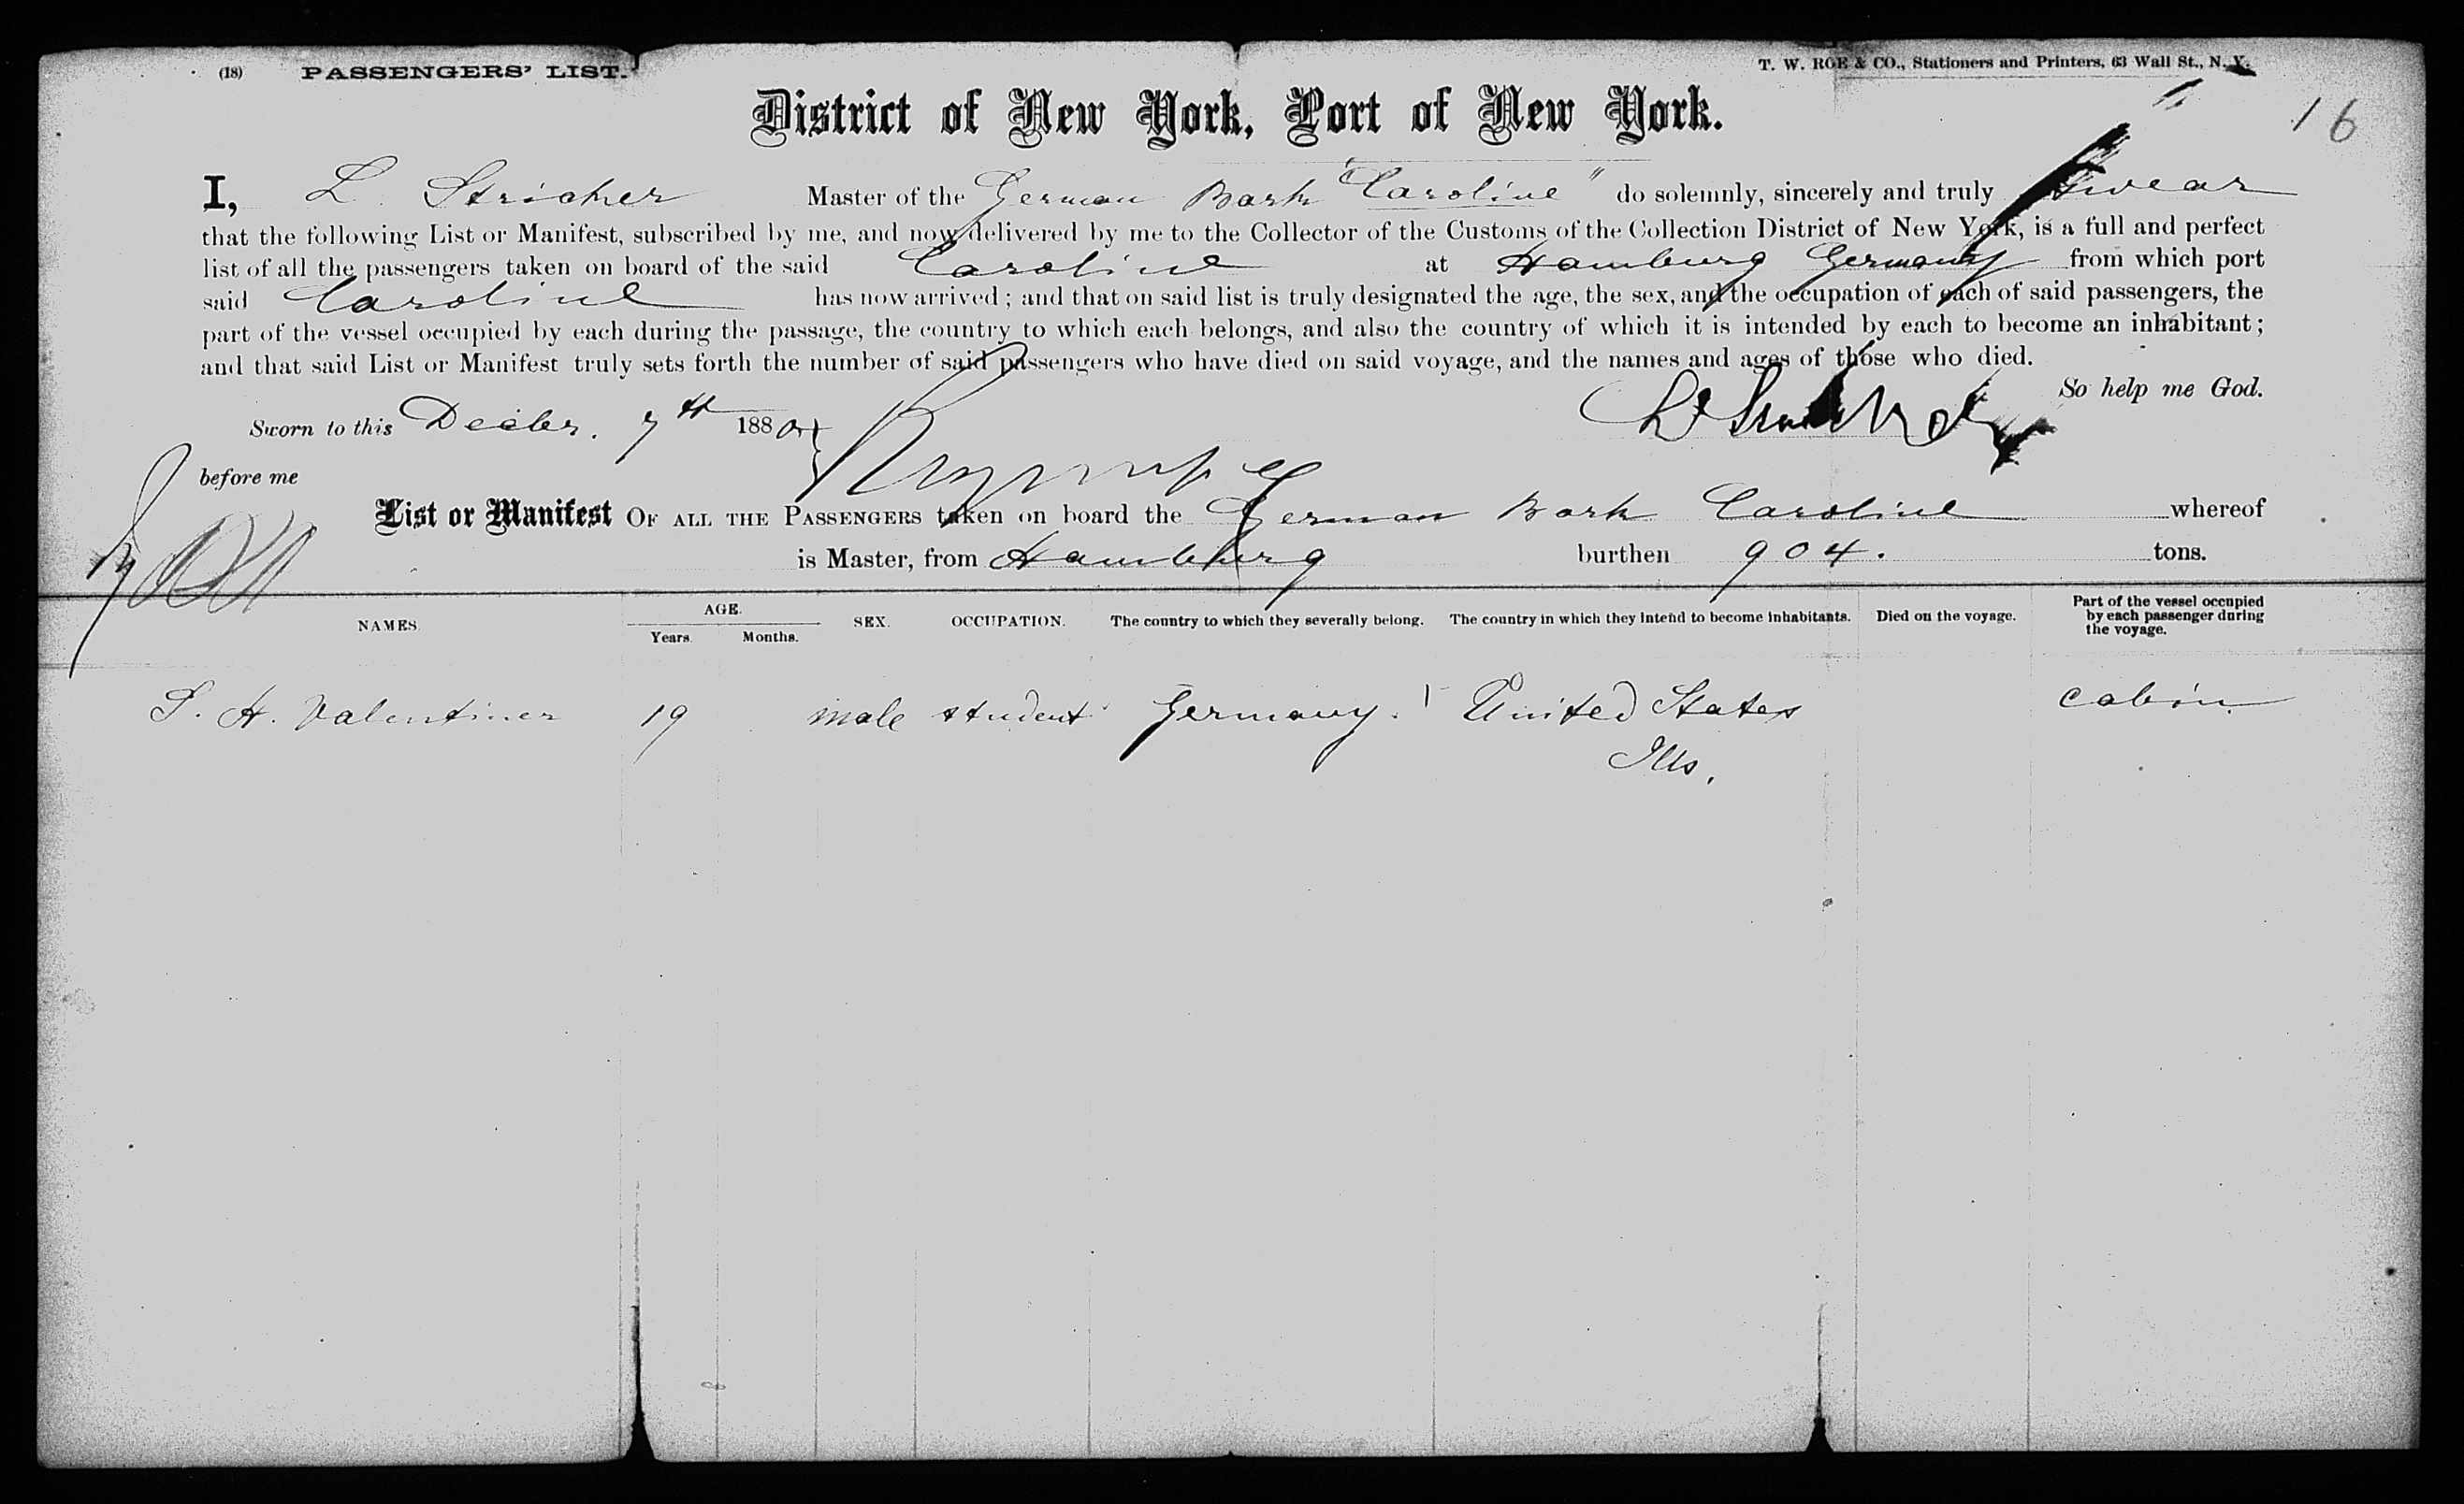 (18) PASSENGERS' LIST.
T. W. ROE & CO., Stationers and Printers, 63 Wall St., N. Y.
16
District of New York, Port of New York.
I, L. Stricker Master of the German Bark "Caroline" do solemnly, sincerely and truly swear
that the following List or Manifest, subscribed by me, and now delivered by me to the Collector of the Customs of the Collection District of New York, is a full and perfect
list of all the passengers taken on board of the said Caroline at Hamburg Germany from which port
said Caroline has now arrived; and that on said list is truly designated the age, the sex, and the occupation of each of said passengers, the
part of the vessel occupied by each during the passage, the country to which each belongs, and also the country of which it is intended by each to become an inhabitant;
and that said List or Manifest truly sets forth the number of said passengers who have died on said voyage, and the names and ages of those who died.
So help me God.
Sworn to this Decbr. 7th 1880
before me
List or Manifest OF ALL THE PASSENGERS taken on board the German Bark Caroline whereof
is Master, from Hamburg burthen 904. tons.
NAMES. AGE. Years. Months. SEX. OCCUPATION. The country to which they severally belong. The country in which they intend to become inhabitants. Died on the voyage. Part of the vessel occupied by each passenger during the voyage.
H. Valentiner 19 male student Germany. United States cabin
Ills.